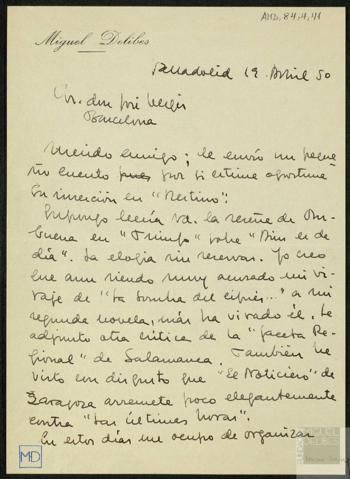 AMD, 84, 4, 41
Miguel Delibes
Valladolid 19. Abril 50
Sr. don José Vergés
Barcelona
Querido amigo; le envío un peque
ño cuento pues por si estima oportuna
su inserción en "Destino".
Supongo leería Vd. la reseña de Om-
buena en "Triunfo" sobre "Aún es de
día". La elogia sin reservas. Yo creo
que aun siendo muy acusado mi vi-
raje de "La sombra del ciprés..." a mi
segunda novela, más ha virado él. Le
adjunto otra crítica de la "Gaceta Re-
gional" de Salamanca. También he
visto con disgusto que "El Noticiero" de
Zaragoza arremete poco elegantemente
contra "Las últimas horas".
En estos días me ocupo de organizar
MD